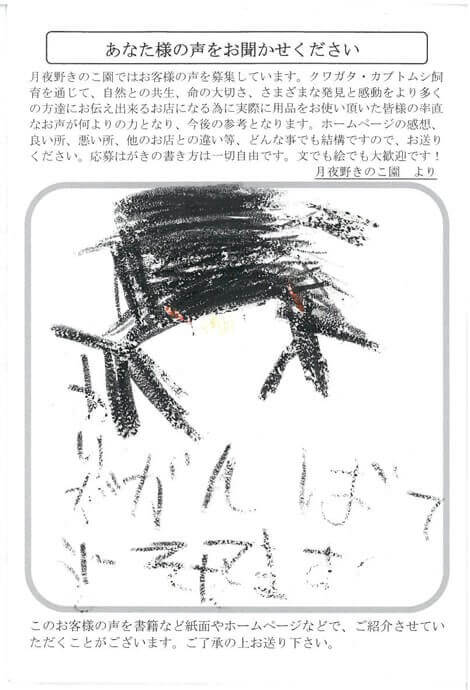 あなた様の声をお聞かせください
月夜野きのこ園ではお客様の声を募集しています。クワガタ・カブトムシ飼
育を通じて、自然との共生、命の大切さ、さまざまな発見と感動をより多く
の方達にお伝え出来るお店になる為に実際に用品をお使い頂いた皆様の率直
なお声が何よりの力となり、今後の参考となります。ホームページの感想、
良い所、悪い所、他のお店との違い等、どんな事でも結構ですので、お送り
ください。応募はがきの書き方は一切自由です。文でも絵でも大歓迎です！
月夜野きのこ園　より
がんばっ
このお客様の声を書籍など紙面やホームページなどで、ご紹介させてい
ただくことがございます。ご了承の上お送り下さい。